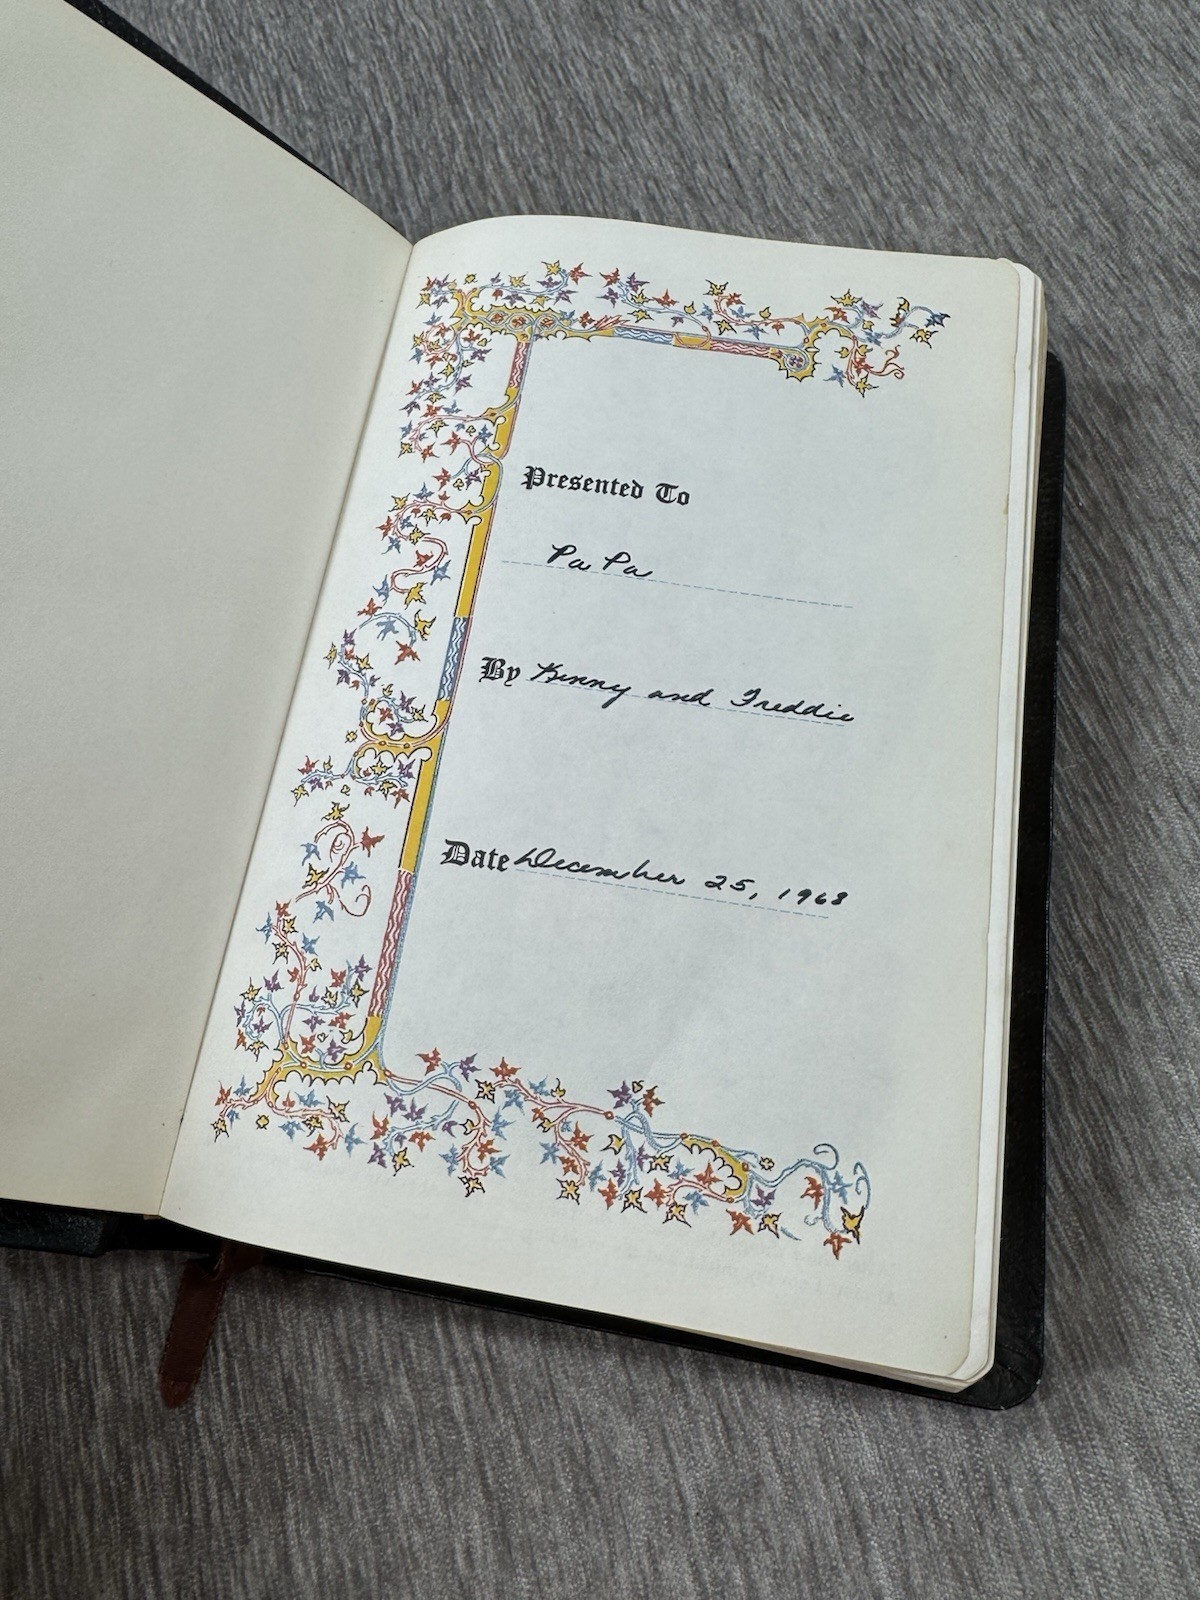 Presented To
Pa Pa
By Kenny and Freddie
Date December 25, 1968